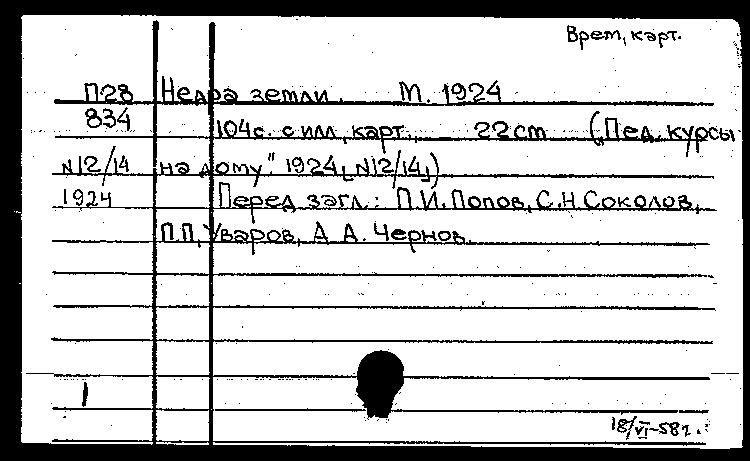 Врем, карт.
П28 Недра земли. М. 1924
834 104с. с илл, карт. 22cm („Пед. курсы
N12/14 на дому". 1924, N12/14,)
1924 Перед загл.: П.И. Попов, С.Н. Соколов,
П.П, Уваров, А А. Чернов.
1
18/VI-58г.